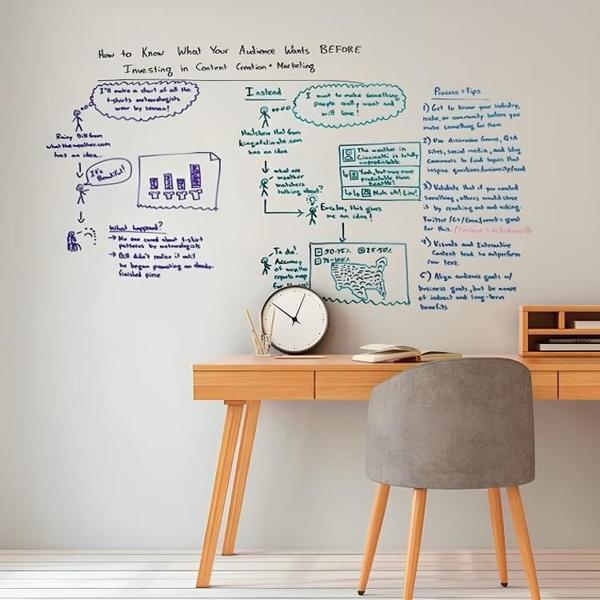 How to Know What Your Audience Wants BEFORE
Investing in Content Creation + Marketing
I'll make a chart of all the
t-shirts meteorologists
wear by season!
Rainy Bill from
whattheweather.com
has an idea...
It's
Beautiful!
What happened?
→ No one cared about t-shirt
patterns by meteorologists
→ Bill didn't realize it until
he began promoting an already
finished piece
Instead
I want to make something
people really want and
will love!
Hailstorm Hal from
kingofclimate.com
has an idea
what are
weather
watchers
talking about?
The weather in
Cincinnati is totally
unpredictable
Yeah, but way more
predictable than
Seattle!
Eureka, this gives
me an idea!
To do:
Accuracy
of weather
reports map
Process + Tips
1) Get to know your industry,
niche, or community before you
make something for them
2) Use discussion forums, Q+A
sites, social media, and blog
comments to find topics that
inspire questions/curiosity/need
3) Validate that if you created
something, others would share
it by reaching out and asking.
Twitter/G+/Email work great
for this.
4) Visuals and Interactive
Content tend to outperform
raw text.
5) Align audience goals w/
business goals, but be aware
of indirect and long-term
benefits